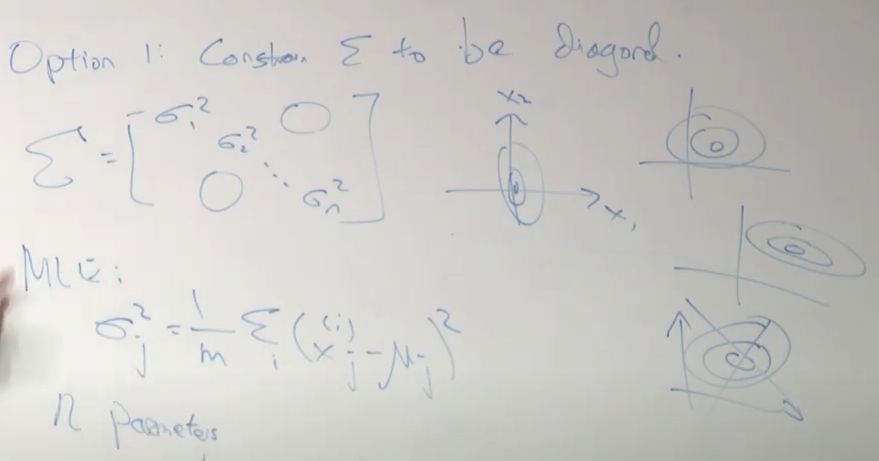 Option 1: Constrain Σ to be diagonal.
Σ = [ σ₁² 0 σ₂² ⋱ 0 σₙ² ]
x₂
x₁
MLE:
σⱼ² = 1/m Σᵢ (xⱼ⁽ⁱ⁾ - μⱼ)²
n parameters